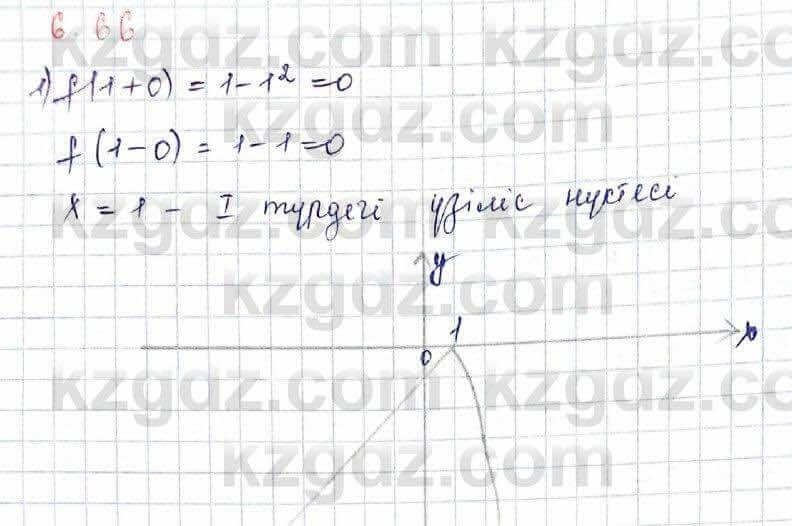 6.66
1) f(1+0) = 1-1² =0
f(1-0) = 1-1=0
x = 1 - I түрдегі үзіліс нүктесі
y
1
0
x
kzgdz.com
kzgdz.com
kzgdz.com
kzgdz.com
kzgdz.com
kzgdz.com
kzgdz.com
kzgdz.com
kzgdz.com
kzgdz.com